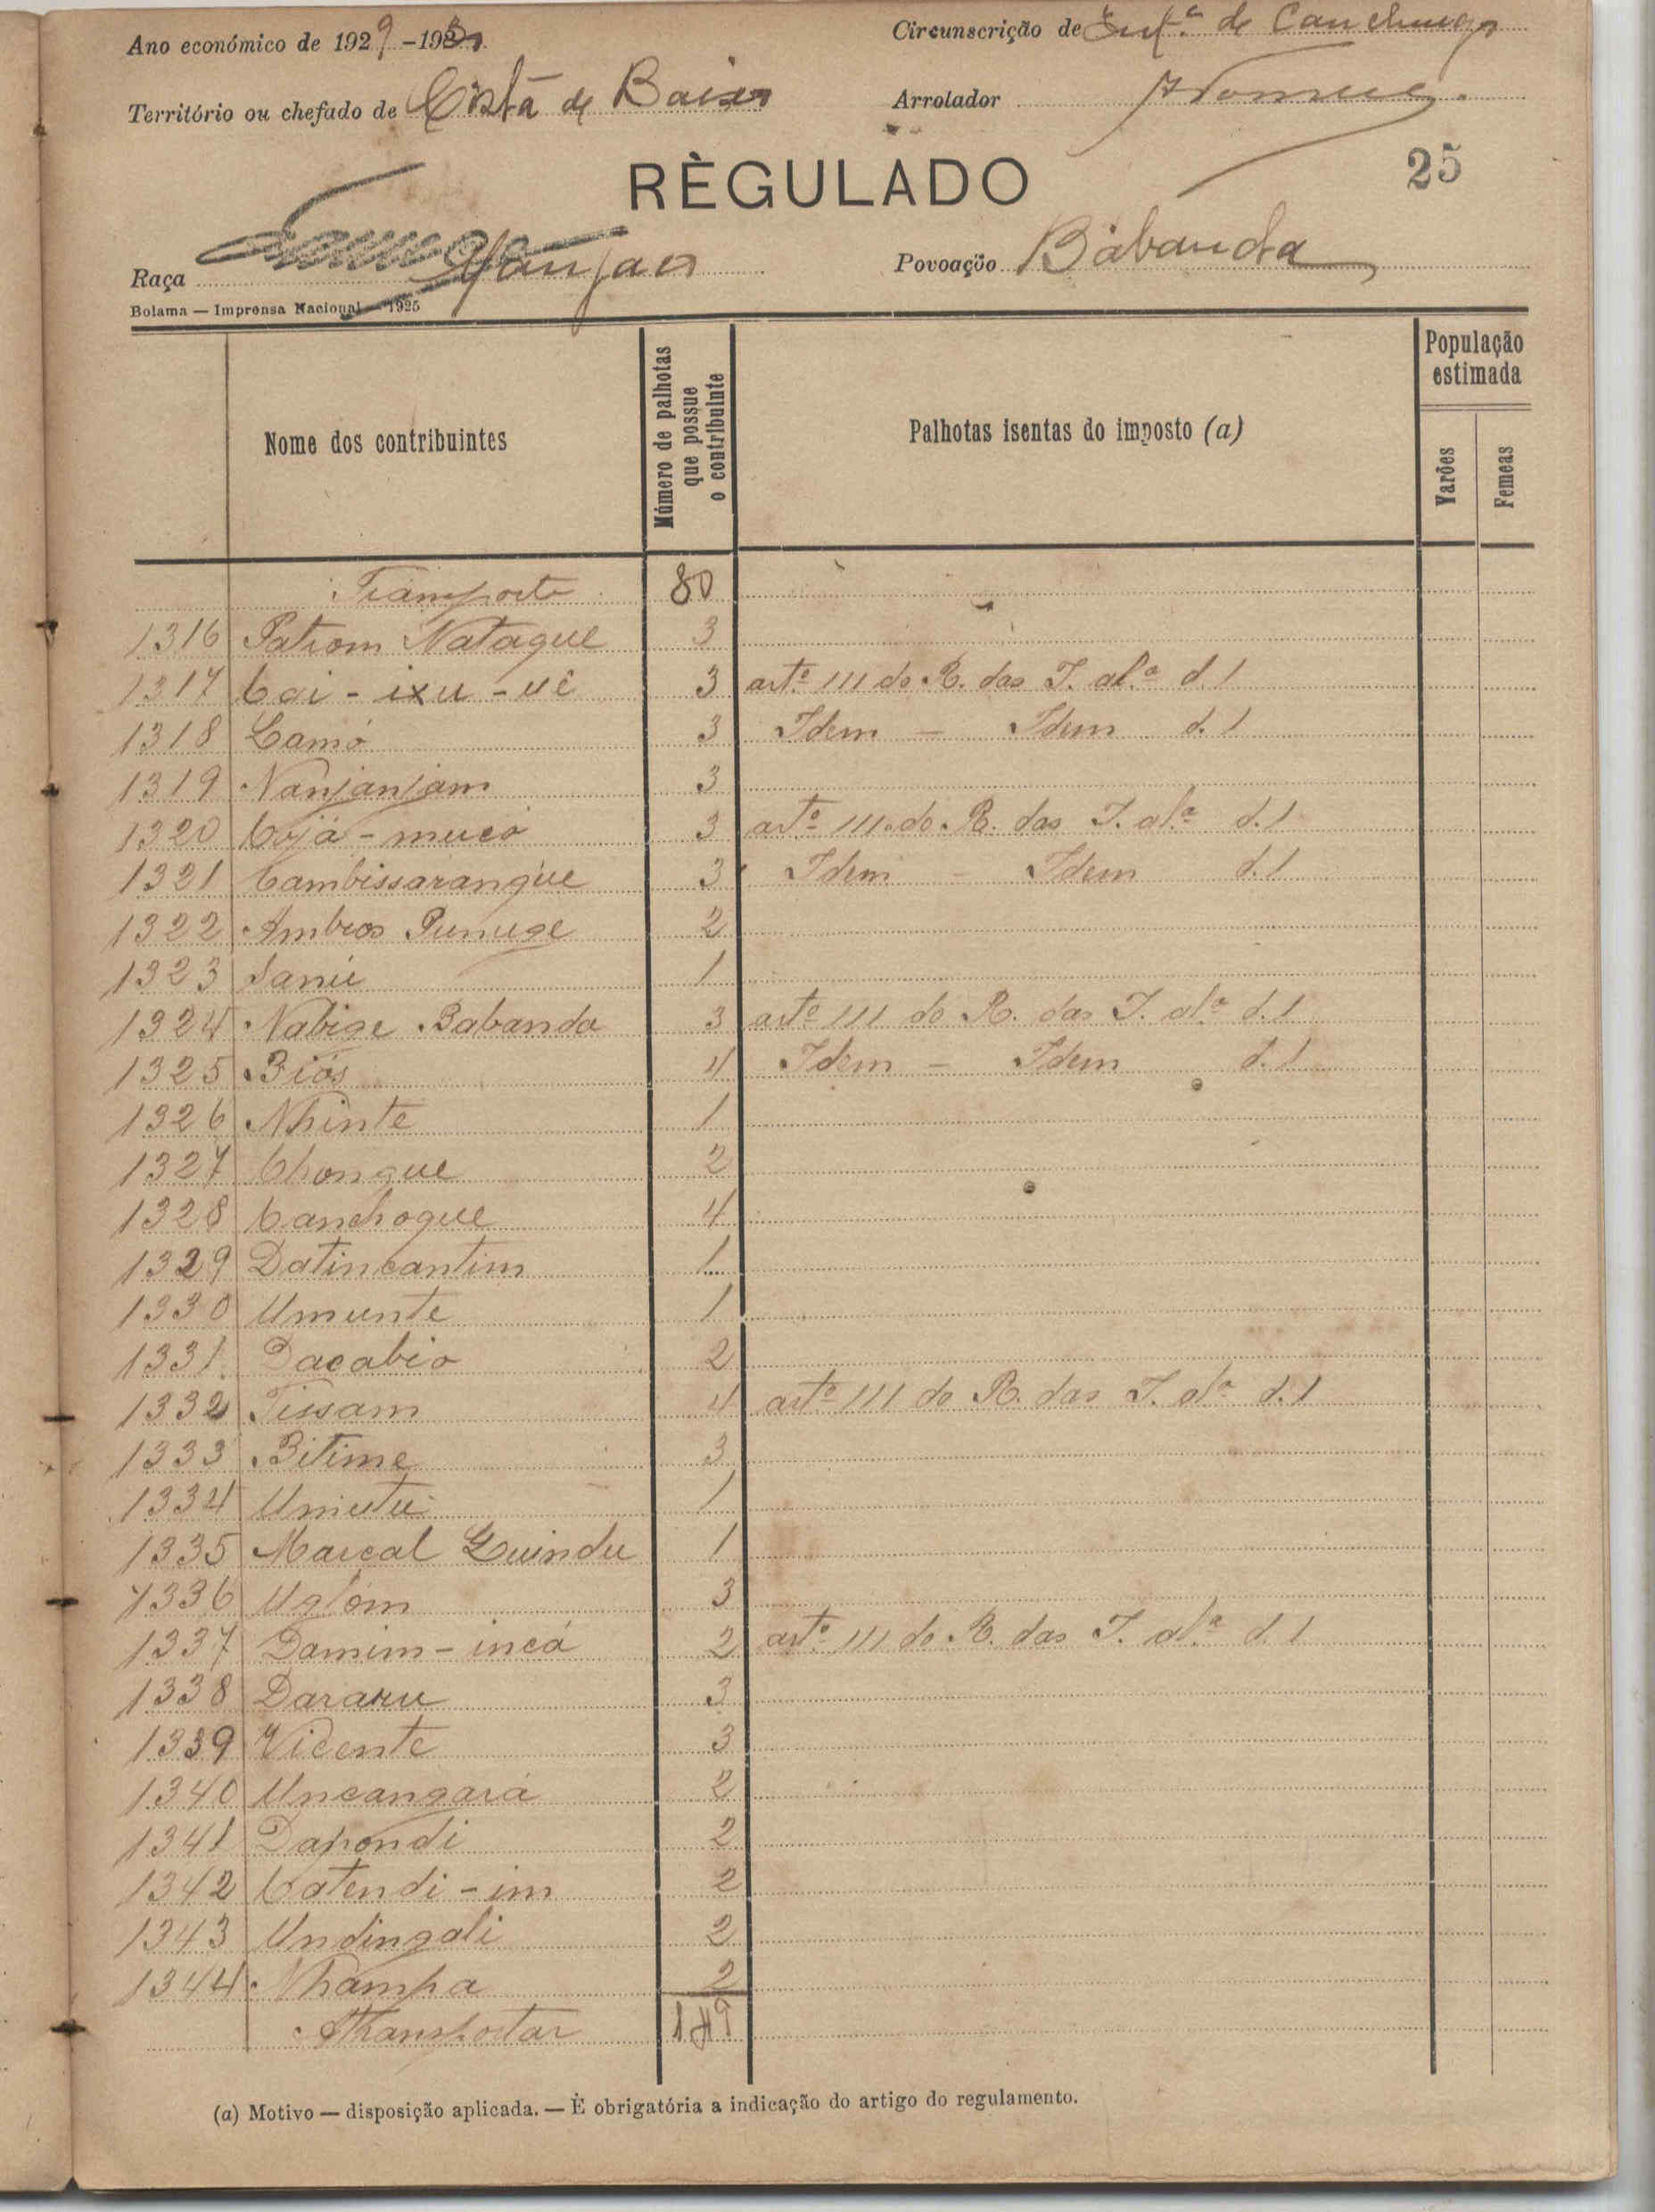 Ano económico de 1929-1930
Circunscrição de Int.ª de Canchungo
Território ou chefado de Costa de Baixo
Arrolador
RÈGULADO
25
Raça Manjaca
Povoação Babanda
Bolama — Imprensa Nacional — 1925
Nome dos contribuintes
Número de palhotas que possue o contribuinte
Palhotas isentas do imposto (a)
População estimada
Varões
Femeas
Transporte 80
1316 Patrom Natague 3
1317 Cai-ixu-uê 3 artº 111 do R. das I. al.ª d. 1
1318 Camó 3 Idem — Idem d. 1
1319 Nanjanjam 3
1320 Cojá-mucó 3 artº 111 do R. das I. al.ª d. 1
1321 Cambissarangue 3 Idem - Idem d. 1
1322 Ambros Pumuge 2
1323 Sanú 1
1324 Nabige Babanda 3 artº 111 do R. das I. al.ª d. 1
1325 Biós 4 Idem — Idem d. 1
1326 Nhinte 1
1327 Chongue 2
1328 Canchogue 4
1329 Datincantim 1
1330 Umunte 1
1331 Dacabio 2
1332 Tissam 4 artº 111 do R. das I. al.ª d. 1
1333 Bitime 3
1334 Umutu 1
1335 Marcal Quindu 1
1336 Uglom 3
1337 Damim-incá 2 artº 111 do R. das I. al.ª d. 1
1338 Dararu 3
1339 Vicente 3
1340 Uncangará 2
1341 Dapondi 2
1342 Catendi-im 2
1343 Undingali 2
1344 Nhampa 2
A Transportar 149
(a) Motivo — disposição aplicada. — È obrigatória a indicação do artigo do regulamento.